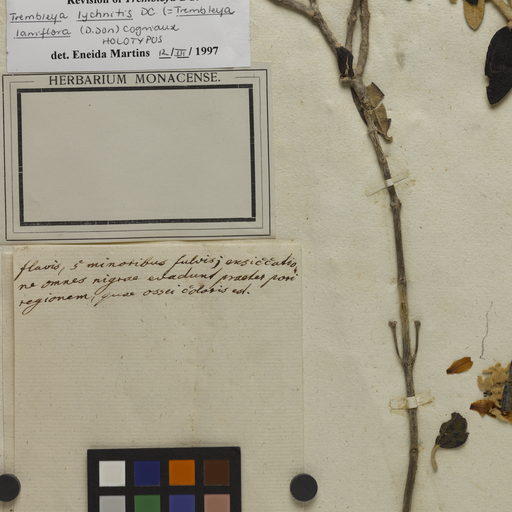 Trembleya lychnitis DC (= Trembleya
laniflora (D.Don) Cogniaux
HOLOTYPUS
det. Eneida Martins 12/III/1997
HERBARIUM MONACENSE.
flavis, 5 minoribus fulvis; exsiccatio
ne omnes nigrae evadunt praeter pori
regionem, quae ossei coloris est.